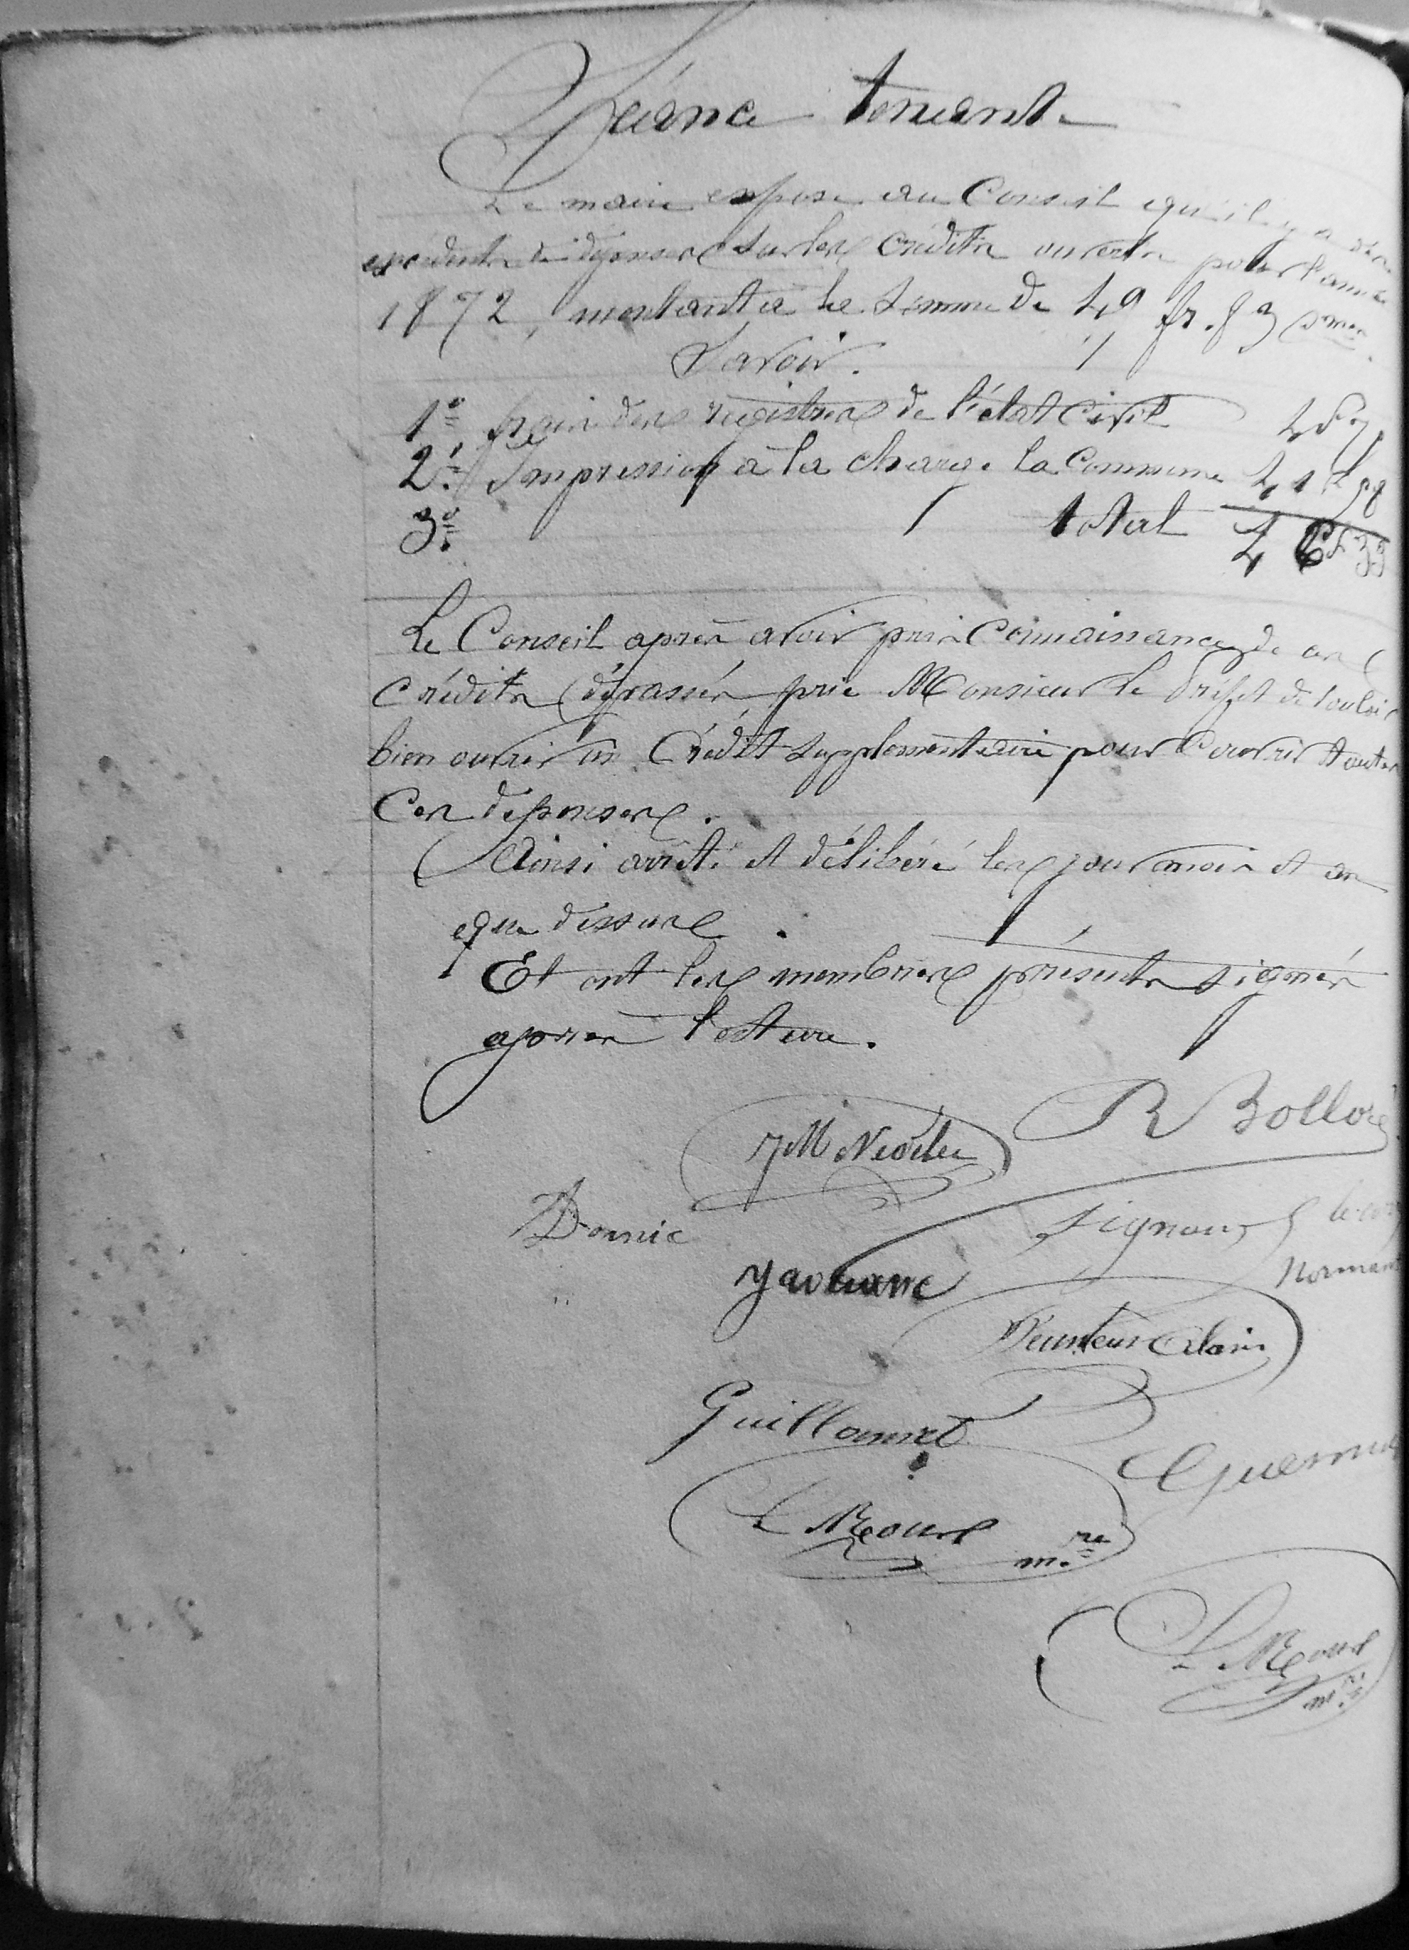 Séance tenante
Le maire expose au Conseil qu'il y a des
excédents de dépenses sur les crédits ouverts pour l'année
1872, montant a la somme de 49 fr. 83
Savoir.
1º frais des registres de l'état civil
2º Impression a la charge la Commune 41 f 58
3º total 46 f 39
Le Conseil après avoir pris Connaissance de ces
Crédits dépassés, prie Monsieur le Préfet de vouloir
bien ouvrir un Crédit supplémentaire pour Couvrir toutes
Ces dépenses.
Ainsi arrêté et délibéré les jour mois et an
que dessus.
Et ont les membres présents signés
après lecture.
R Bolloré
J M Nédélec
Dornic
Signour
Normant
Guillamet
Le Roux m.re
Le Roux
m.re